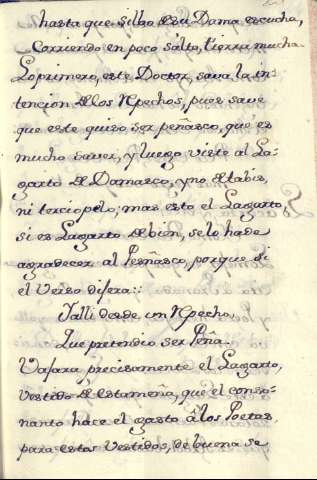 hasta que silbo de su Dama escucha,
Corriendo en poco salto, tierra mucha.
Lo primero, este Doctor, save la in-
tencion de los Repechos, pues save
que este quiso ser peñasco, que es
mucho saver, y luego viste al La-
garto de Damasco, y no de tabis,
ni terciopelo; mas esto el Lagarto,
si es Lagarto de bien, se lo hade
agradecer al Peñasco, porque si
el Verso dijera:
Y alli desde un Repecho,
Que pretendio ser Peña.
Vajara precisamente el Lagarto,
Vestido de estameña, que el conso-
nanto hace el gasto â los Poetas
para estos Vestidos, de buena se